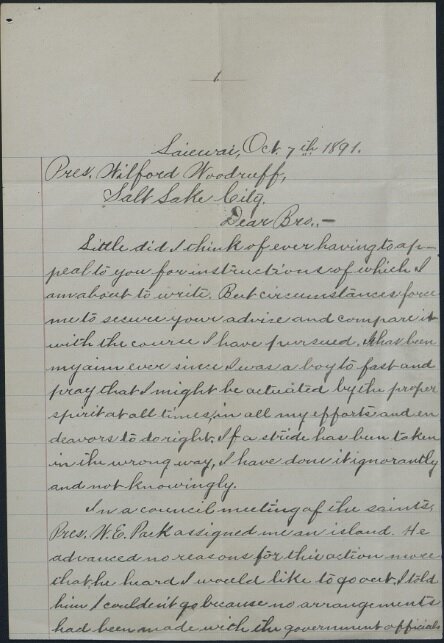 1
Laiewai, Oct. 7th 1891.
Pres. Wilford Woodruff,
Salt Lake City.
Dear Bro.,—
Little did I think of ever having to ap-
peal to you for instructions of which I
am about to write. But circumstances force
me to secure your advise and compare it
with the course I have pursued. It has been
my aim ever since I was a boy to fast and
pray that I might be actuated by the proper
spirit at all times, in all my efforts and en
deavors to do right. If a stride has been taken
in the wrong way, I have done it ignorantly
and not knowingly.
In a council meeting of the saints,
Pres. W. E. Pack assigned me an island. He
advanced no reasons for this action more
that he heard I would like to go out. I told
him I couldn't go because no arrangements
had been made with the government officials